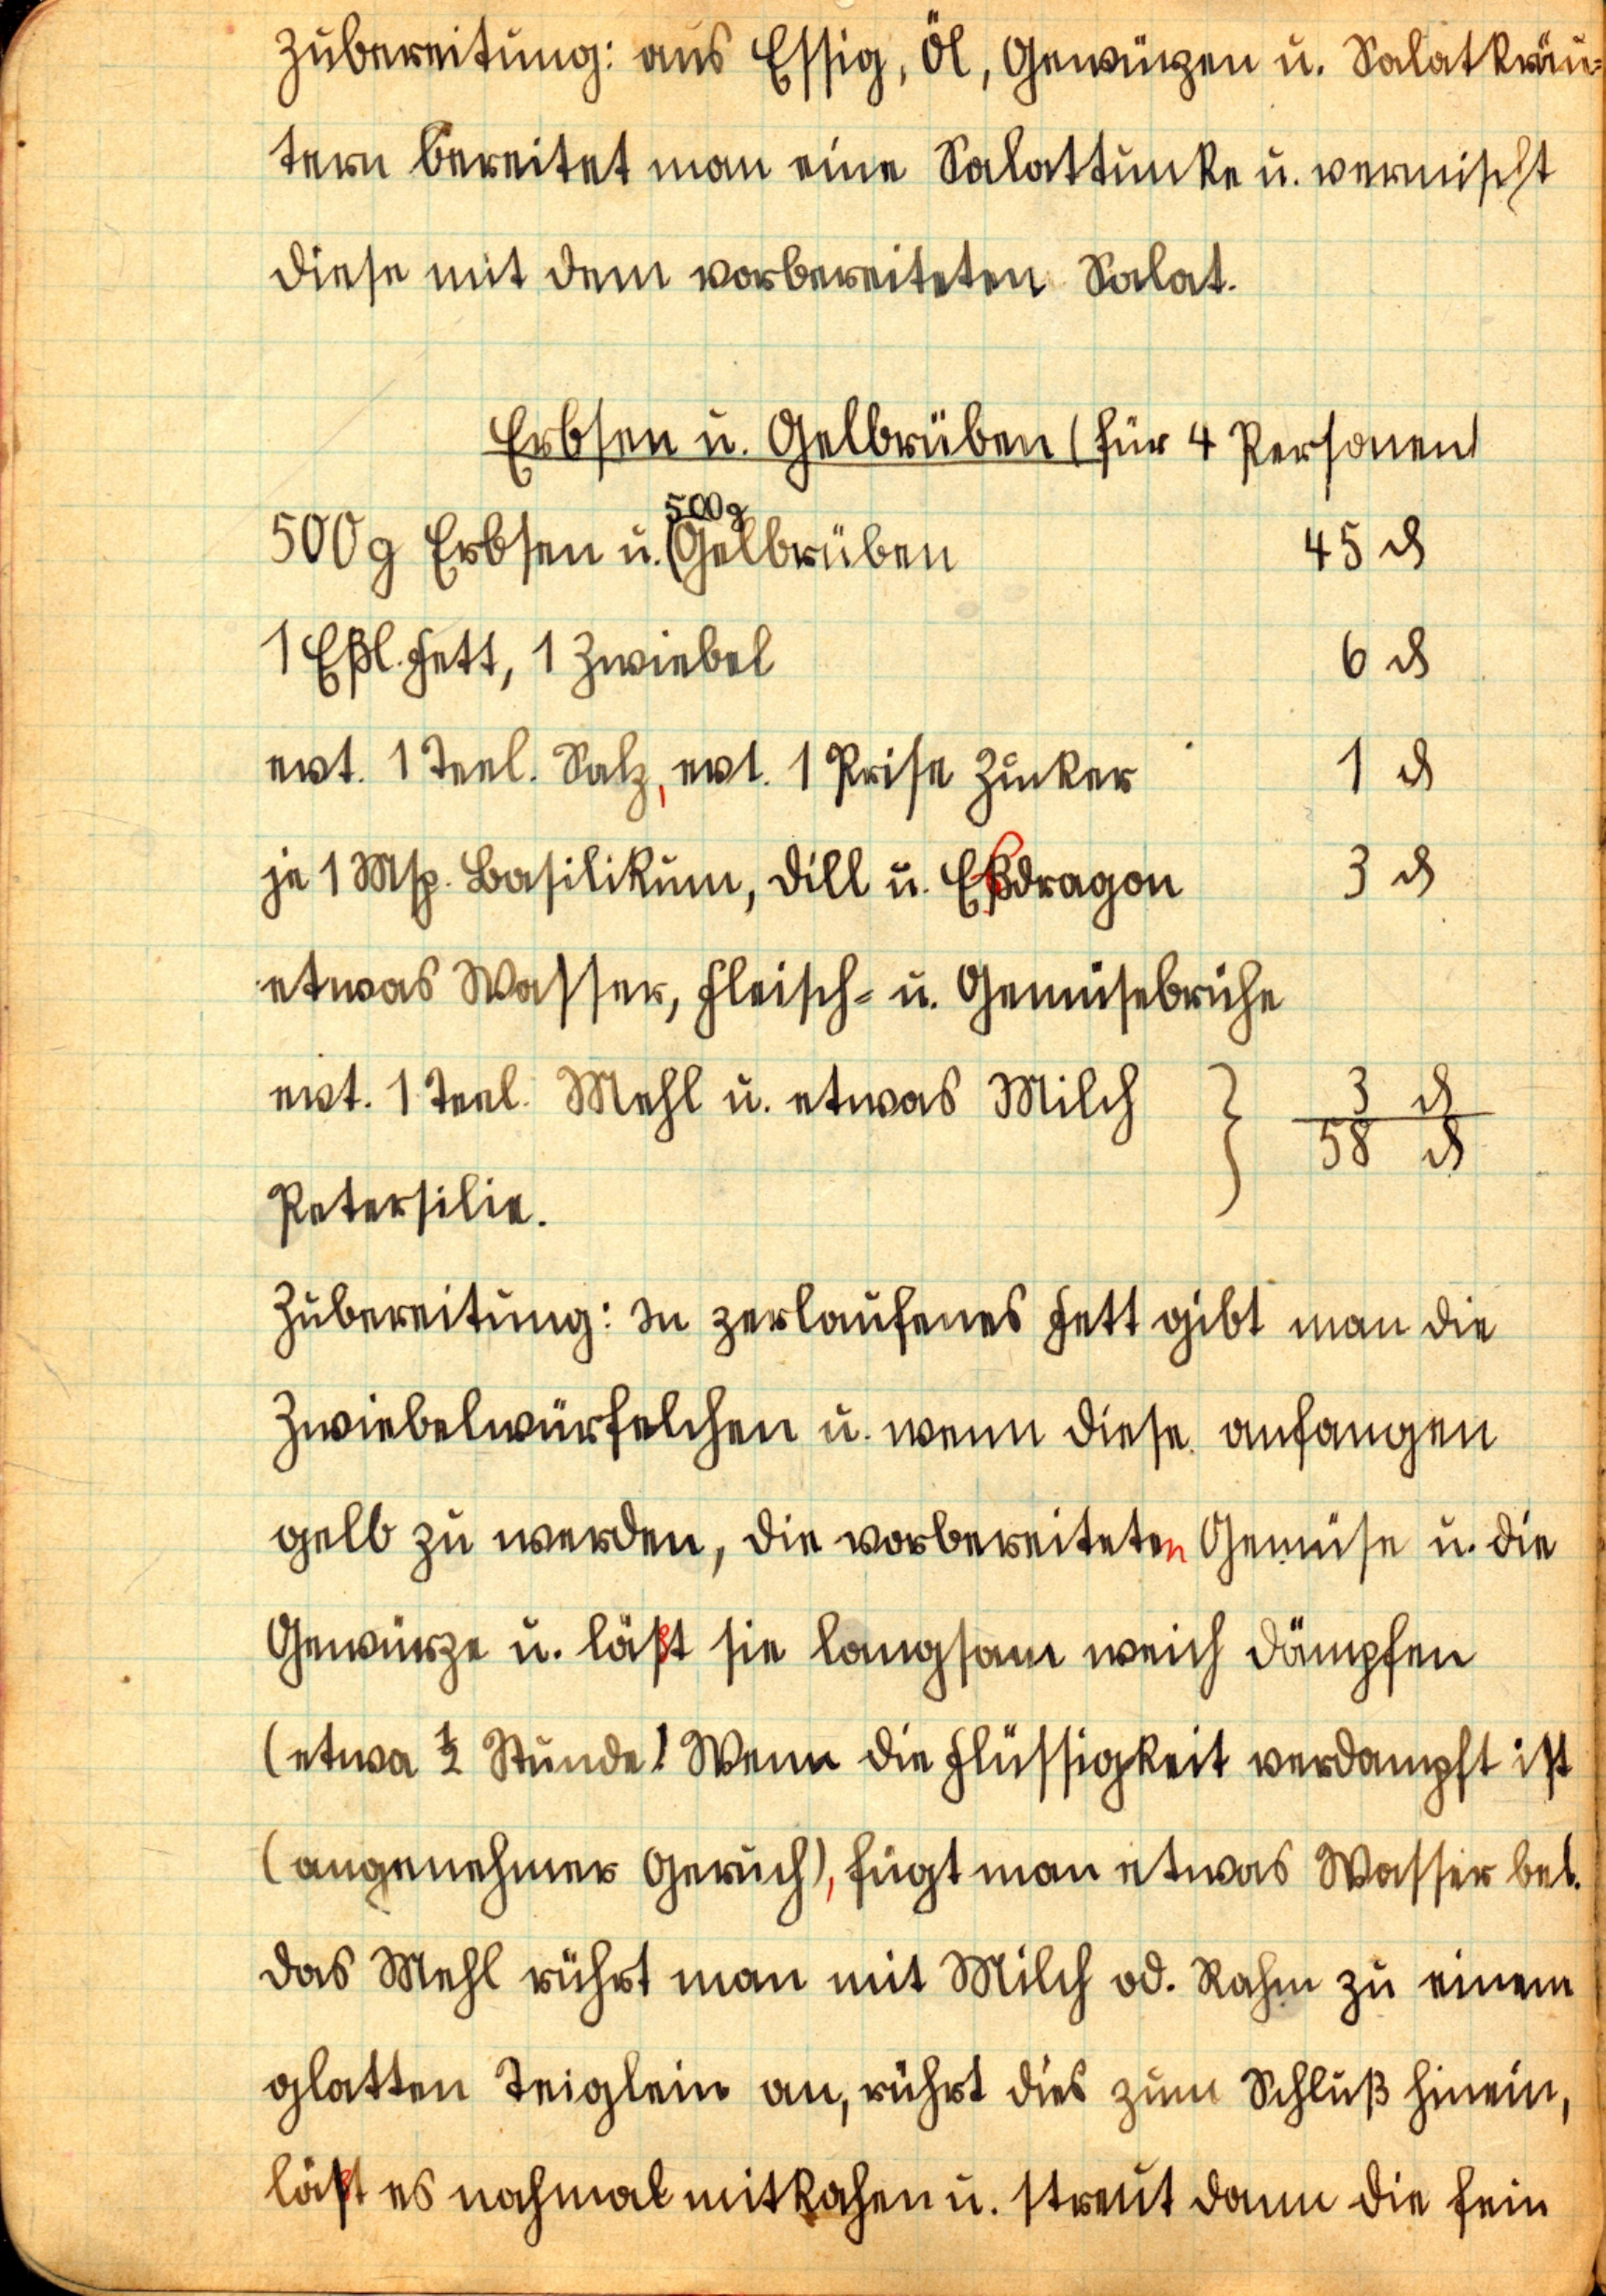 Zubereitung: aus Essig, Öl, Gewürzen u. Salatkräu=
tern bereitet man eine Salattunke u. vermischt
diese mit dem vorbereiteten Salat.
Erbsen u. Gelbrüben (für 4 Personen)
500g
500g Erbsen u. (Gelbrüben 45 ₰
1 Eßl. Fett, 1 Zwiebel 6 ₰
evt. 1 Teel. Salz, evt. 1 Prise Zucker 1 ₰
je 1 Msp. Basilikum, Dill u. Eßdragon 3 ₰
etwas Wasser, Fleisch- u. Gemüsebrühe
evt. 1 Teel. Mehl u. etwas Milch } 3 ₰
58 ₰
Petersilie.
Zubereitung: In zerlaufenes Fett gibt man die
Zwiebelwürfelchen u. wenn diese anfangen
gelb zu werden, die vorbereiteten Gemüse u. die
Gewürze u. läßt sie langsam weich dämpfen
(etwa ½ Stunde) Wenn die Flüssigkeit verdampft ist
(angenehmer Geruch), fügt man etwas Wasser bei.
das Mehl rührt man mit Milch od. Rahm zu einem
glatten Teiglein an, rührt dies zum Schluß hinein,
läßt es nochmal mitkochen u. streut dann die fein